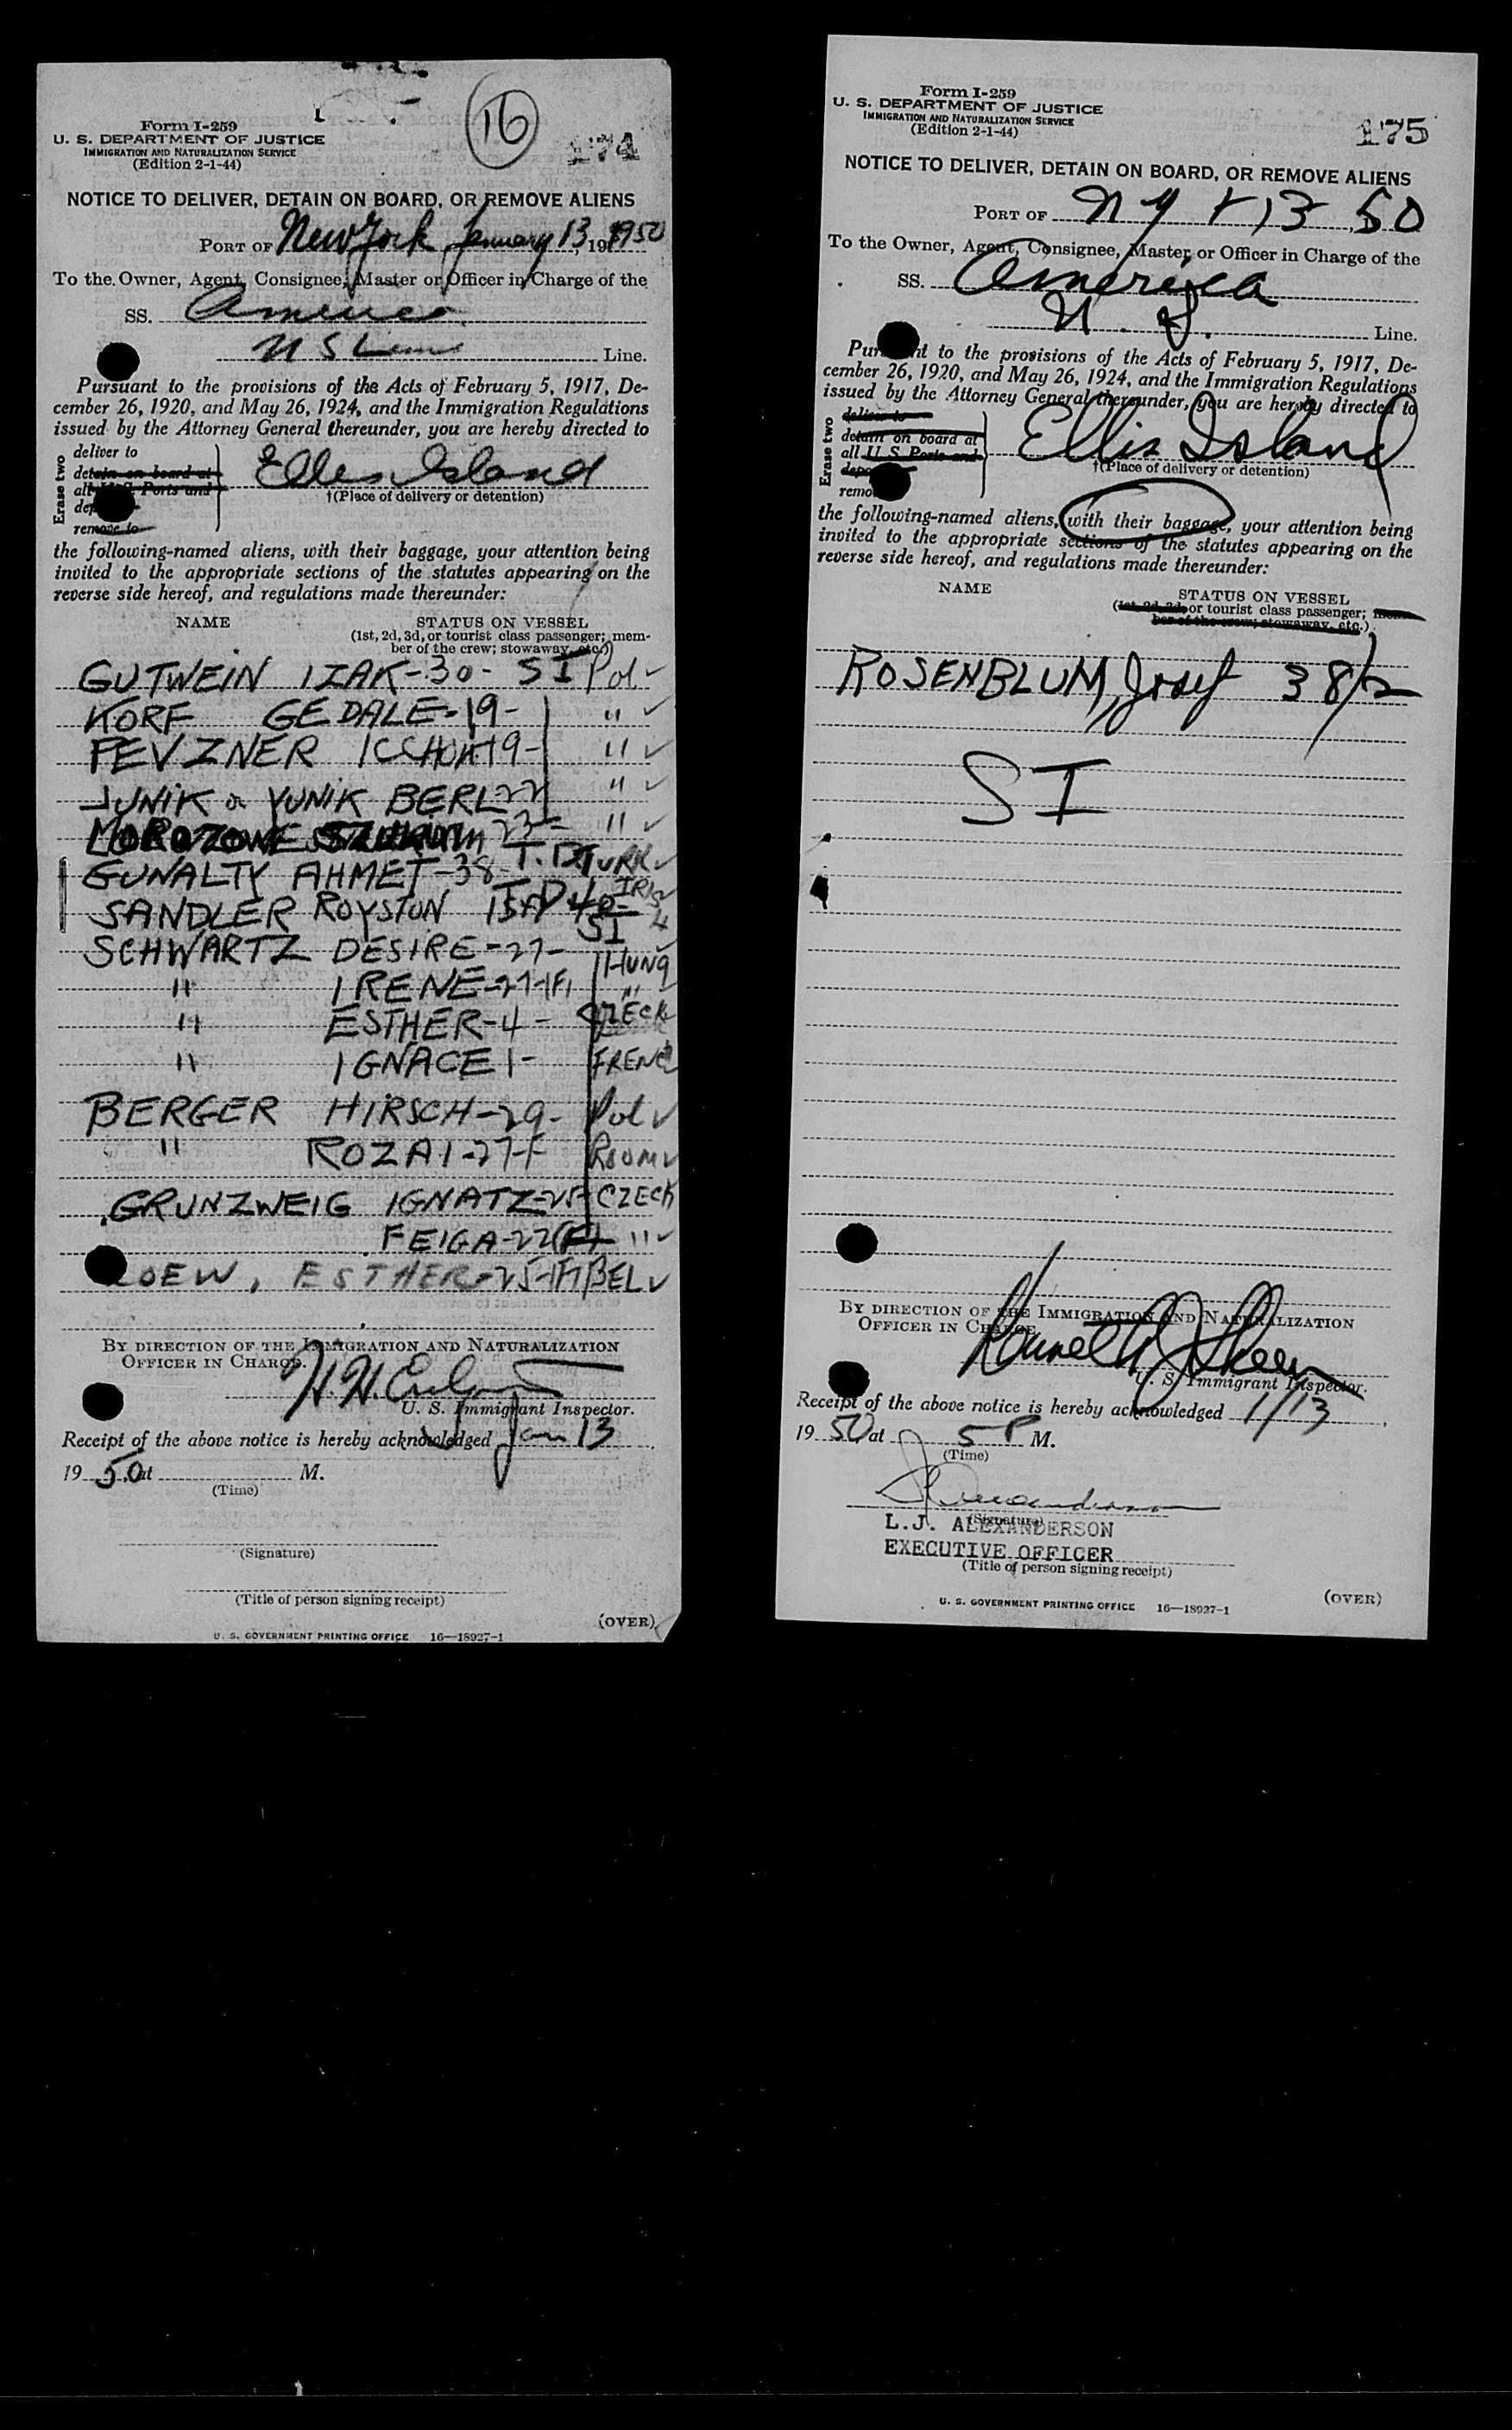 16
174
Form I-259
U. S. DEPARTMENT OF JUSTICE
IMMIGRATION AND NATURALIZATION SERVICE
(Edition 2-1-44)
NOTICE TO DELIVER, DETAIN ON BOARD, OR REMOVE ALIENS
PORT OF New York, January 13, 1950
To the Owner, Agent, Consignee, Master or Officer in Charge of the
SS. America
U S Lines Line.
Pursuant to the provisions of the Acts of February 5, 1917, De-
cember 26, 1920, and May 26, 1924, and the Immigration Regulations
issued by the Attorney General thereunder, you are hereby directed to
Erase two
deliver to
detain on board at
all U. S. Ports and
remove to
Ellis Island
†(Place of delivery or detention)
the following-named aliens, with their baggage, your attention being
invited to the appropriate sections of the statutes appearing on the
reverse side hereof, and regulations made thereunder:
NAME STATUS ON VESSEL
(1st, 2d, 3d, or tourist class passenger; mem-
ber of the crew; stowaway, etc.)
GUTWEIN IZAK-30- SI Pol ✓
KORF GEDALE-19- " ✓
PEVZNER 19- " ✓
JUNIK or YUNIK BERL-22 " ✓
23- " ✓
GUNALTY AHMET-38 T.D TURK ✓
SANDLER ROYSTON
SI
SCHWARTZ DESIRE-27- HUNG
" IRENE-27-(F) "
" ESTHER-4- CZECK
" IGNACE 1- FRENCH
BERGER HIRSCH-29- Pol ✓
" ROZAI-27-F ROUM ✓
GRUNZWEIG IGNATZ-25- CZECK
FEIGA-22(F) " ✓
LOEW, ESTHER-25-(F) BEL ✓
BY DIRECTION OF THE IMMIGRATION AND NATURALIZATION
OFFICER IN CHARGE.
U. S. Immigrant Inspector.
Receipt of the above notice is hereby acknowledged Jan 13,
19 50, at M.
(Time)
(Signature)
(Title of person signing receipt)
(OVER)
U. S. GOVERNMENT PRINTING OFFICE 16—18927-1
175
Form I-259
U. S. DEPARTMENT OF JUSTICE
IMMIGRATION AND NATURALIZATION SERVICE
(Edition 2-1-44)
NOTICE TO DELIVER, DETAIN ON BOARD, OR REMOVE ALIENS
PORT OF N Y 1 13 50
To the Owner, Agent, Consignee, Master or Officer in Charge of the
SS. America
U. S. Line.
Pursuant to the provisions of the Acts of February 5, 1917, De-
cember 26, 1920, and May 26, 1924, and the Immigration Regulations
issued by the Attorney General thereunder, you are hereby directed to
Erase two
deliver to
detain on board at
all U. S. Ports and
Ellis Island
†(Place of delivery or detention)
the following-named aliens, with their baggage, your attention being
invited to the appropriate sections of the statutes appearing on the
reverse side hereof, and regulations made thereunder:
NAME STATUS ON VESSEL
(1st, 2d, 3d, or tourist class passenger; mem-
ber of the crew; stowaway, etc.)
ROSENBLUM, Josef 38/2
SI
BY DIRECTION OF THE IMMIGRATION AND NATURALIZATION
OFFICER IN CHARGE.
U. S. Immigrant Inspector.
Receipt of the above notice is hereby acknowledged 1/13,
19 50, at 5 P M.
(Time)
(Signature)
L.J. ALEXANDERSON
EXECUTIVE OFFICER
(Title of person signing receipt)
(OVER)
U. S. GOVERNMENT PRINTING OFFICE 16—18927-1